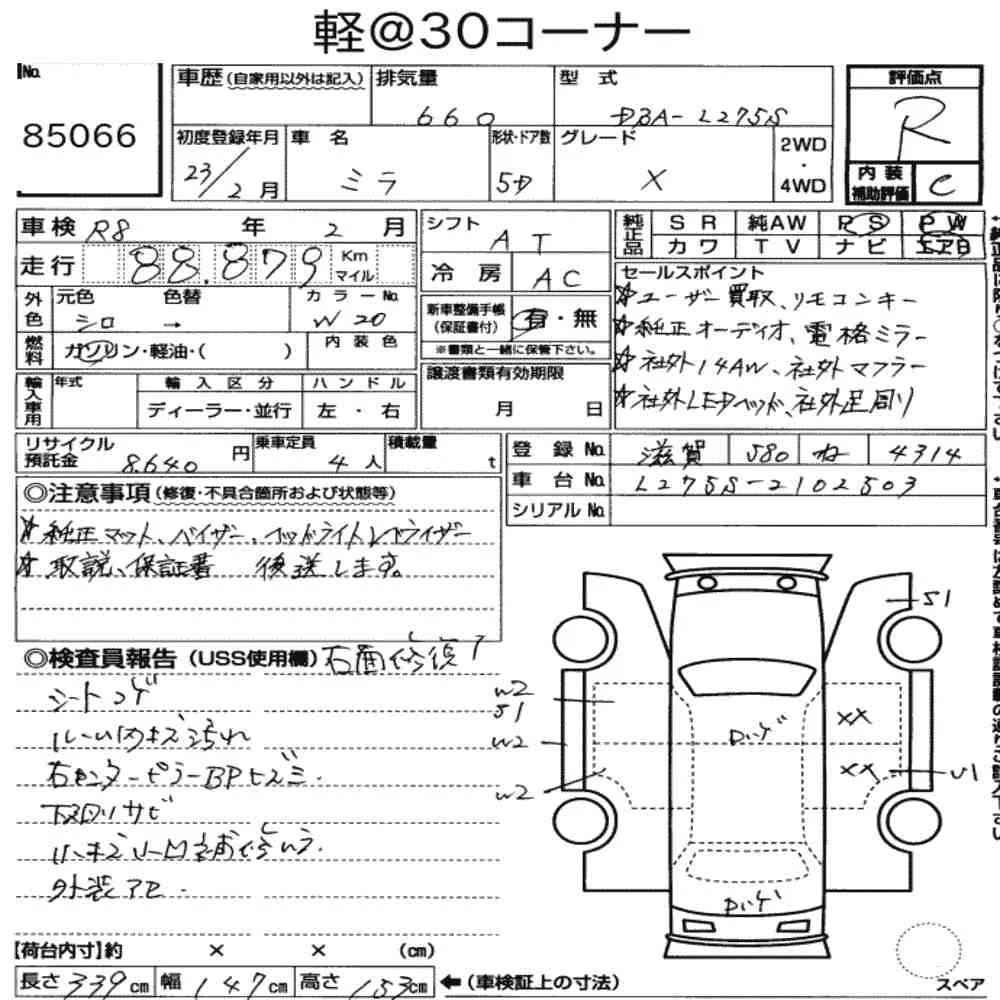 軽@30コーナー
No.
85066
車歴(自家用以外は記入)
排気量
660
型 式
DBA-L275S
評価点
R
初度登録年月
23/2月
車 名
ミラ
形状・ドア数
5D
グレード
X
2WD
・
4WD
内 装
補助評価
C
車検 R8 年 2 月
シフト
AT
純正品
SR 純AW PS PW
カワ TV ナビ エアB
走行 88,879 Km
マイル
冷 房
AC
セールスポイント
☆ユーザー買取、リモコンキー
☆純正オーディオ、電格ミラー
☆社外14AW、社外マフラー
☆社外LEDヘッド、社外足周り
外色
元色 色替
シロ →
カラーNo.
W20
新車整備手帳
(保証書付)
有・無
※書類と一緒に保管下さい。
燃料
ガソリン・軽油・( )
内 装 色
輸入車用
年式
輸 入 区 分
ディーラー・並行
ハ ン ド ル
左 ・ 右
譲渡書類有効期限
月 日
リサイクル
預託金
8.640円
乗車定員
4人
積載量
t
登 録 No. 滋賀 580 ね 4314
車 台 No. L275S-2102503
シリアルNo.
◎注意事項(修復・不具合箇所および状態等)
☆純正マット、バイザー、ヘッドライトレベライザー
☆取説、保証書 後送します。
◎検査員報告(USS使用欄)右面修復
シートコゲ
ルーム内キズ汚れ
右センターピラーBPヒズミ.
下回りサビ
外装アセ.
S1
W2
S1
W2
W2
XX
XX
U1
ロハゲ
ロハゲ
【荷台内寸】約 × × (cm)
長さ339cm 幅147cm 高さ153cm
←(車検証上の寸法)
スペア